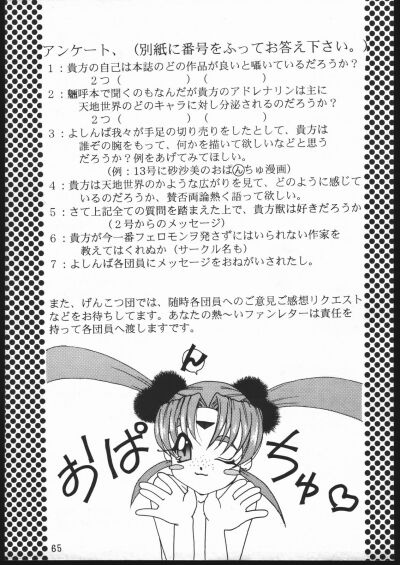 アンケート、（別紙に番号をふってお答え下さい。）
1：貴方の自己は本誌のどの作品が良いと囁いているだろうか？
2つ（　　　　　）（　　　　　）
2：魎呼本で聞くのもなんだが貴方のアドレナリンは主に
天地世界のどのキャラに対し分泌されるのだろうか？
2つ（　　　　　）（　　　　　）
3：よしんば我々が手足の切り売りをしたとして、貴方は
誰ぞの腕をもって、何かを描いて欲しいなどと思う
だろうか？例をあげてみてほしい。
（例：13号に砂沙美のおぱんちゅ漫画）
4：貴方は天地世界のかような広がりを見て、どのように感じて
いるのだろうか、賛否両論熱く語って欲しい。
5：さて上記全ての質問を踏まえた上で、貴方獣は好きだろうか
（2号からのメッセージ）
6：貴方が今一番フェロモンヲ発さずにはいられない作家を
教えてはくれぬか（サークル名も）
7：よしんば各団員にメッセージをおねがいされたし。
また、げんこつ団では、随時各団員へのご意見ご感想リクエスト
などをお待ちしてます。あなたの熱〜いファンレターは責任を
持って各団員へ渡しますです。
おぱんちゅ♡
65